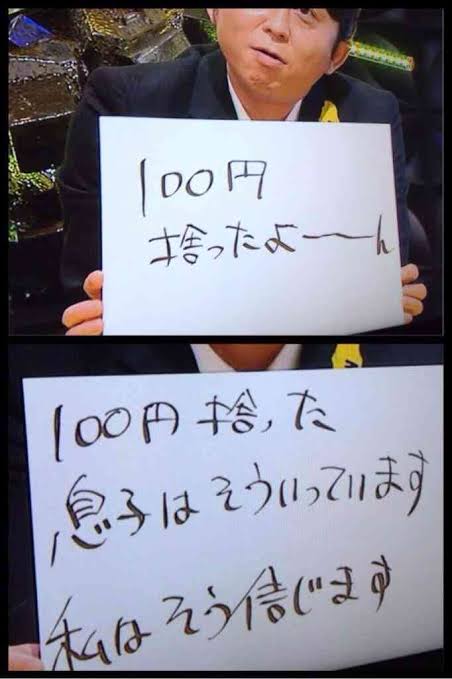 100円
捨ったよーーん
100円捨った
息子はそういっています
私はそう信じます